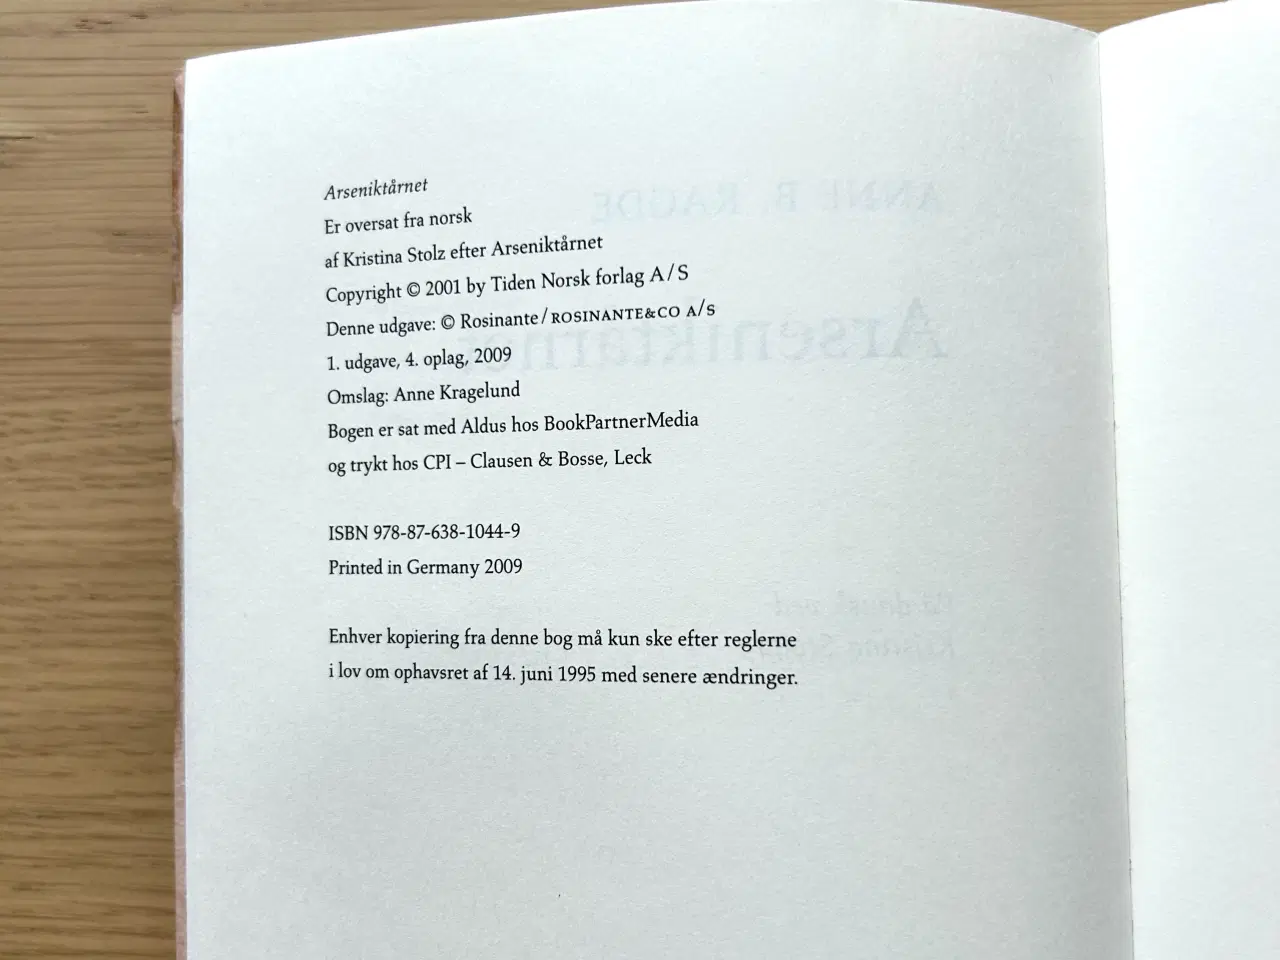 Arseniktårnet
Er oversat fra norsk
af Kristina Stolz efter Arseniktårnet
Copyright © 2001 by Tiden Norsk forlag A/S
Denne udgave: © Rosinante/ROSINANTE&CO A/S
1. udgave, 4. oplag, 2009
Omslag: Anne Kragelund
Bogen er sat med Aldus hos BookPartnerMedia
og trykt hos CPI – Clausen & Bosse, Leck
ISBN 978-87-638-1044-9
Printed in Germany 2009
Enhver kopiering fra denne bog må kun ske efter reglerne
i lov om ophavsret af 14. juni 1995 med senere ændringer.
ANNE B. RAGDE
Arseniktårnet